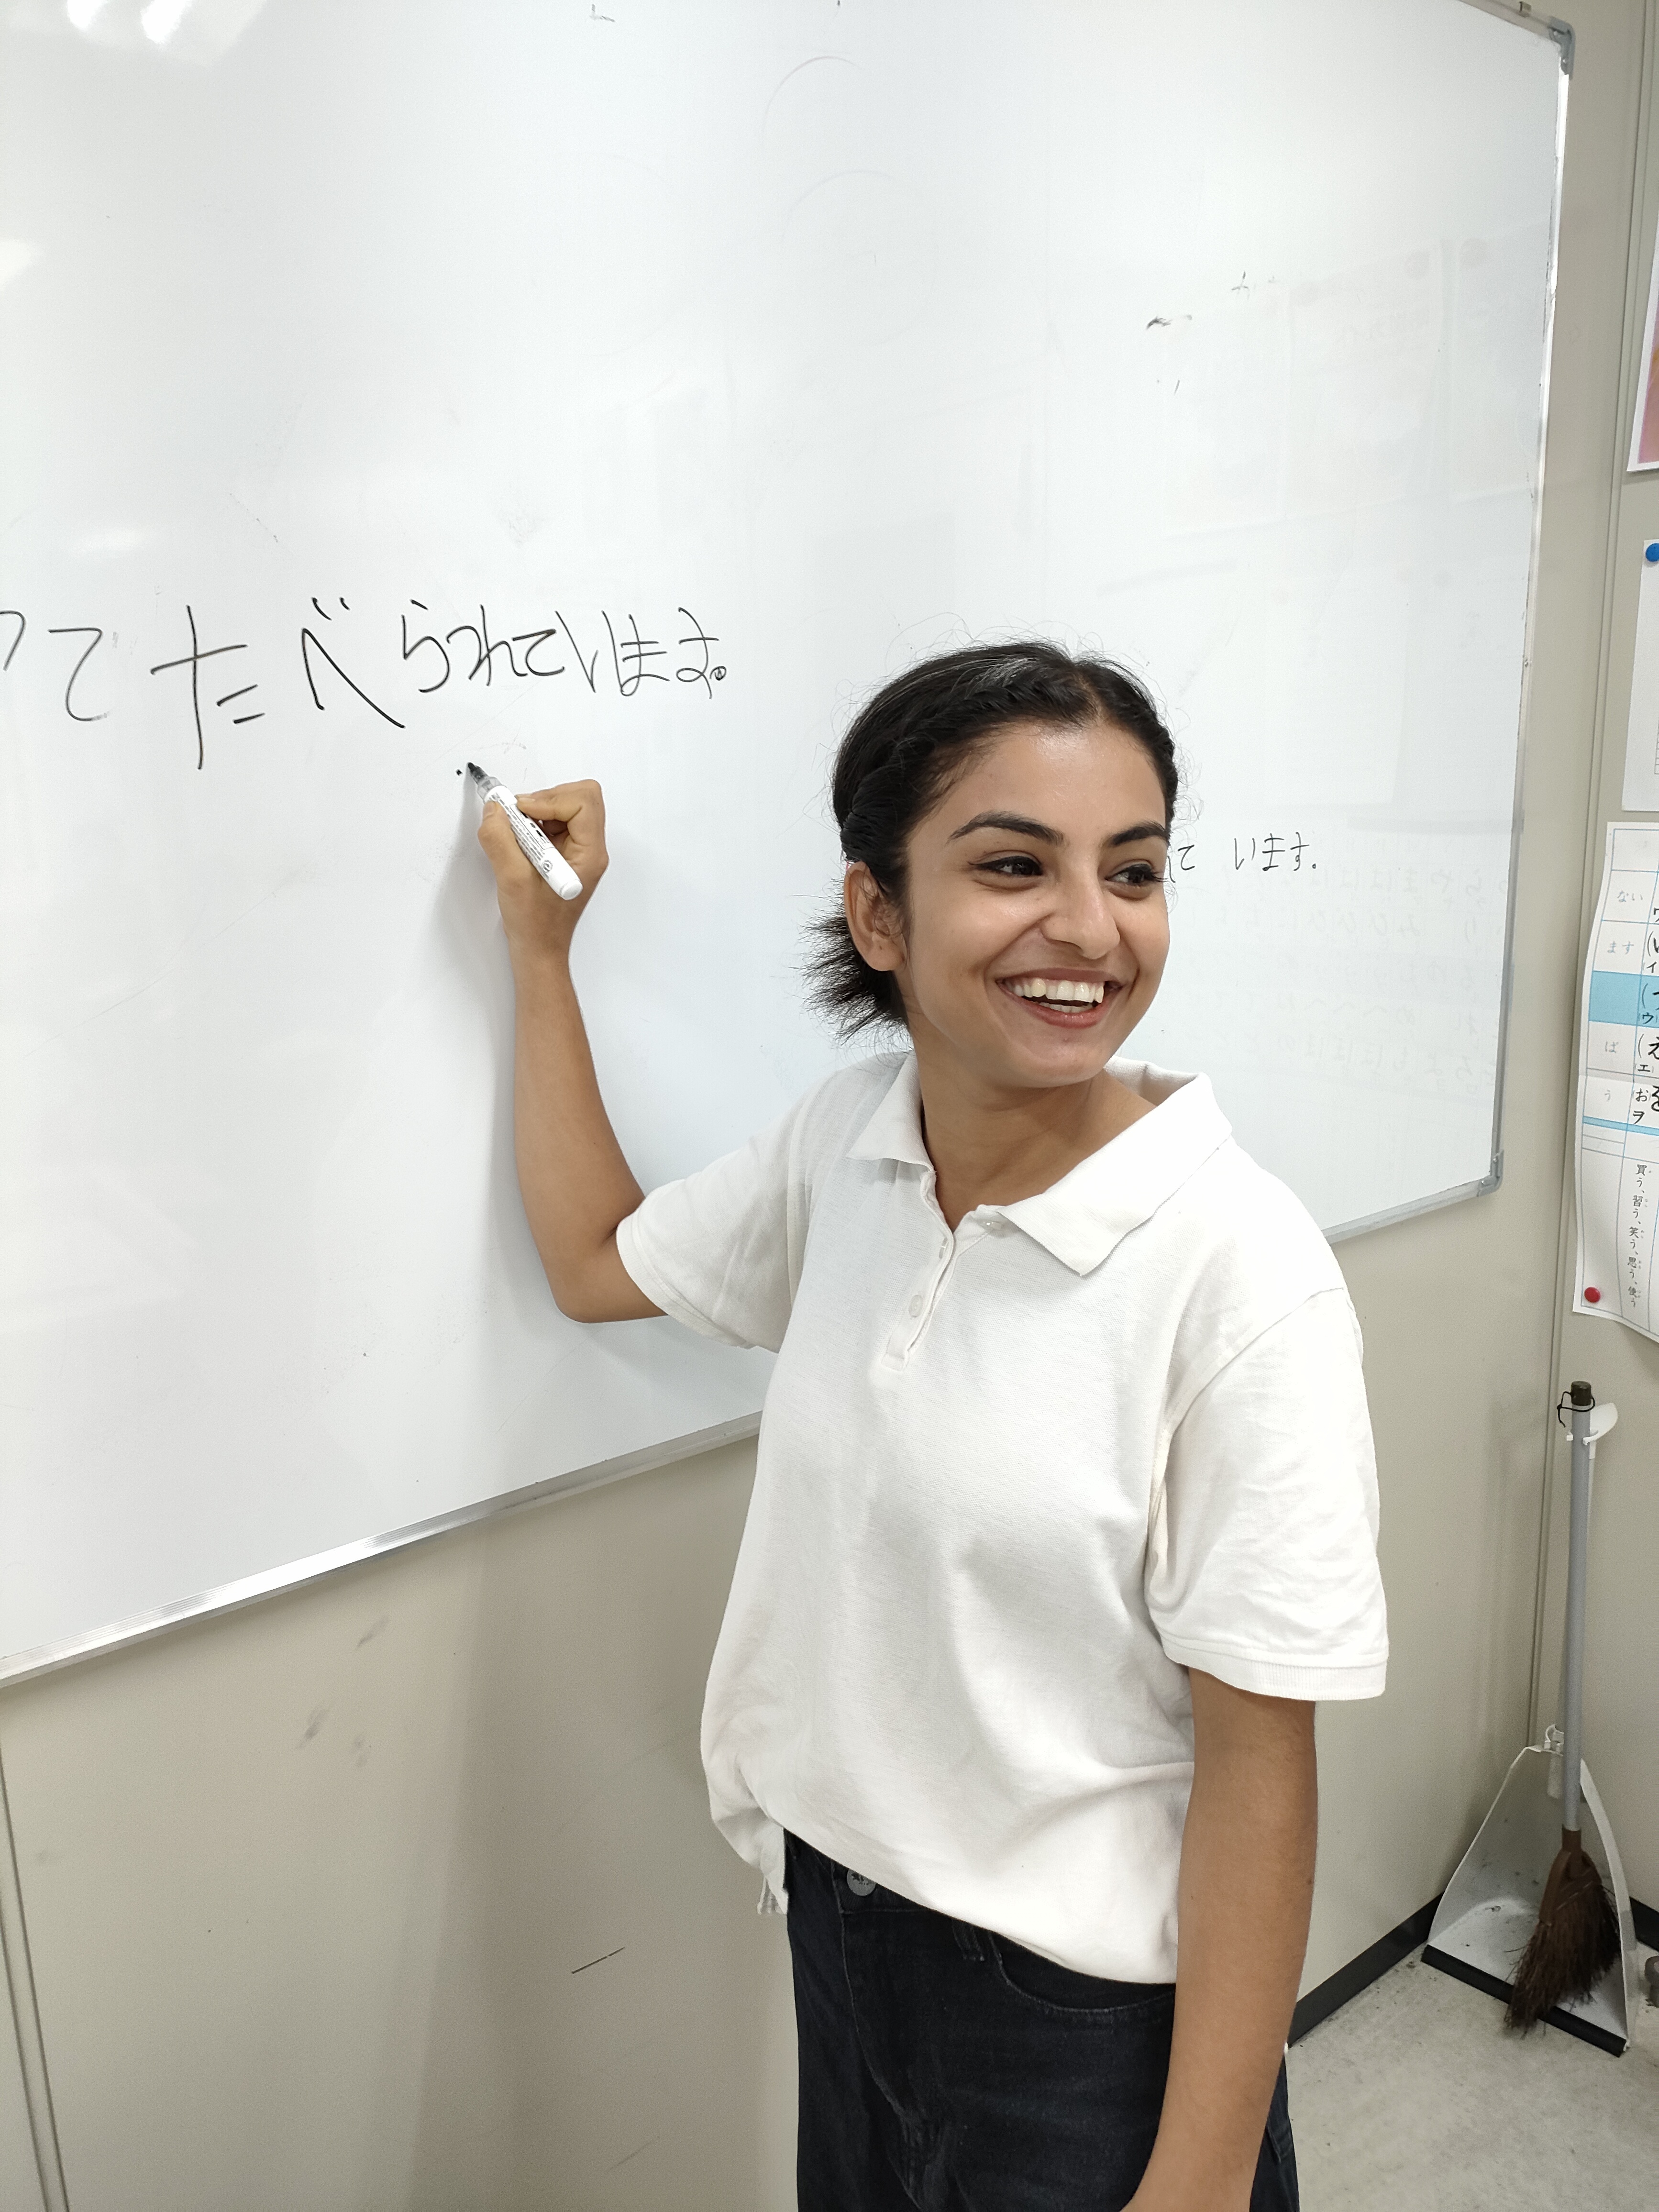 って たべられています。
て います。
ない
ます
イ
ウ
ば
(え
エ
う
お を
ヲ
買う、習う、笑う、思う、使う